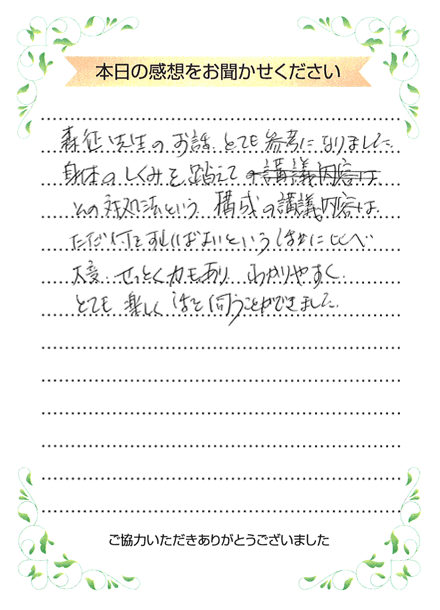 本日の感想をお聞かせください
森征先生のお話、とても参考になりました。
身体のしくみを踏えて の講義内容は
その対処法という 構成の講義内容は、
ただ何をすればよいという に比べ
大変 せっとく力もあり わかりやすく、
とても 楽しく 伺うことができました。
ご協力いただきありがとうございました